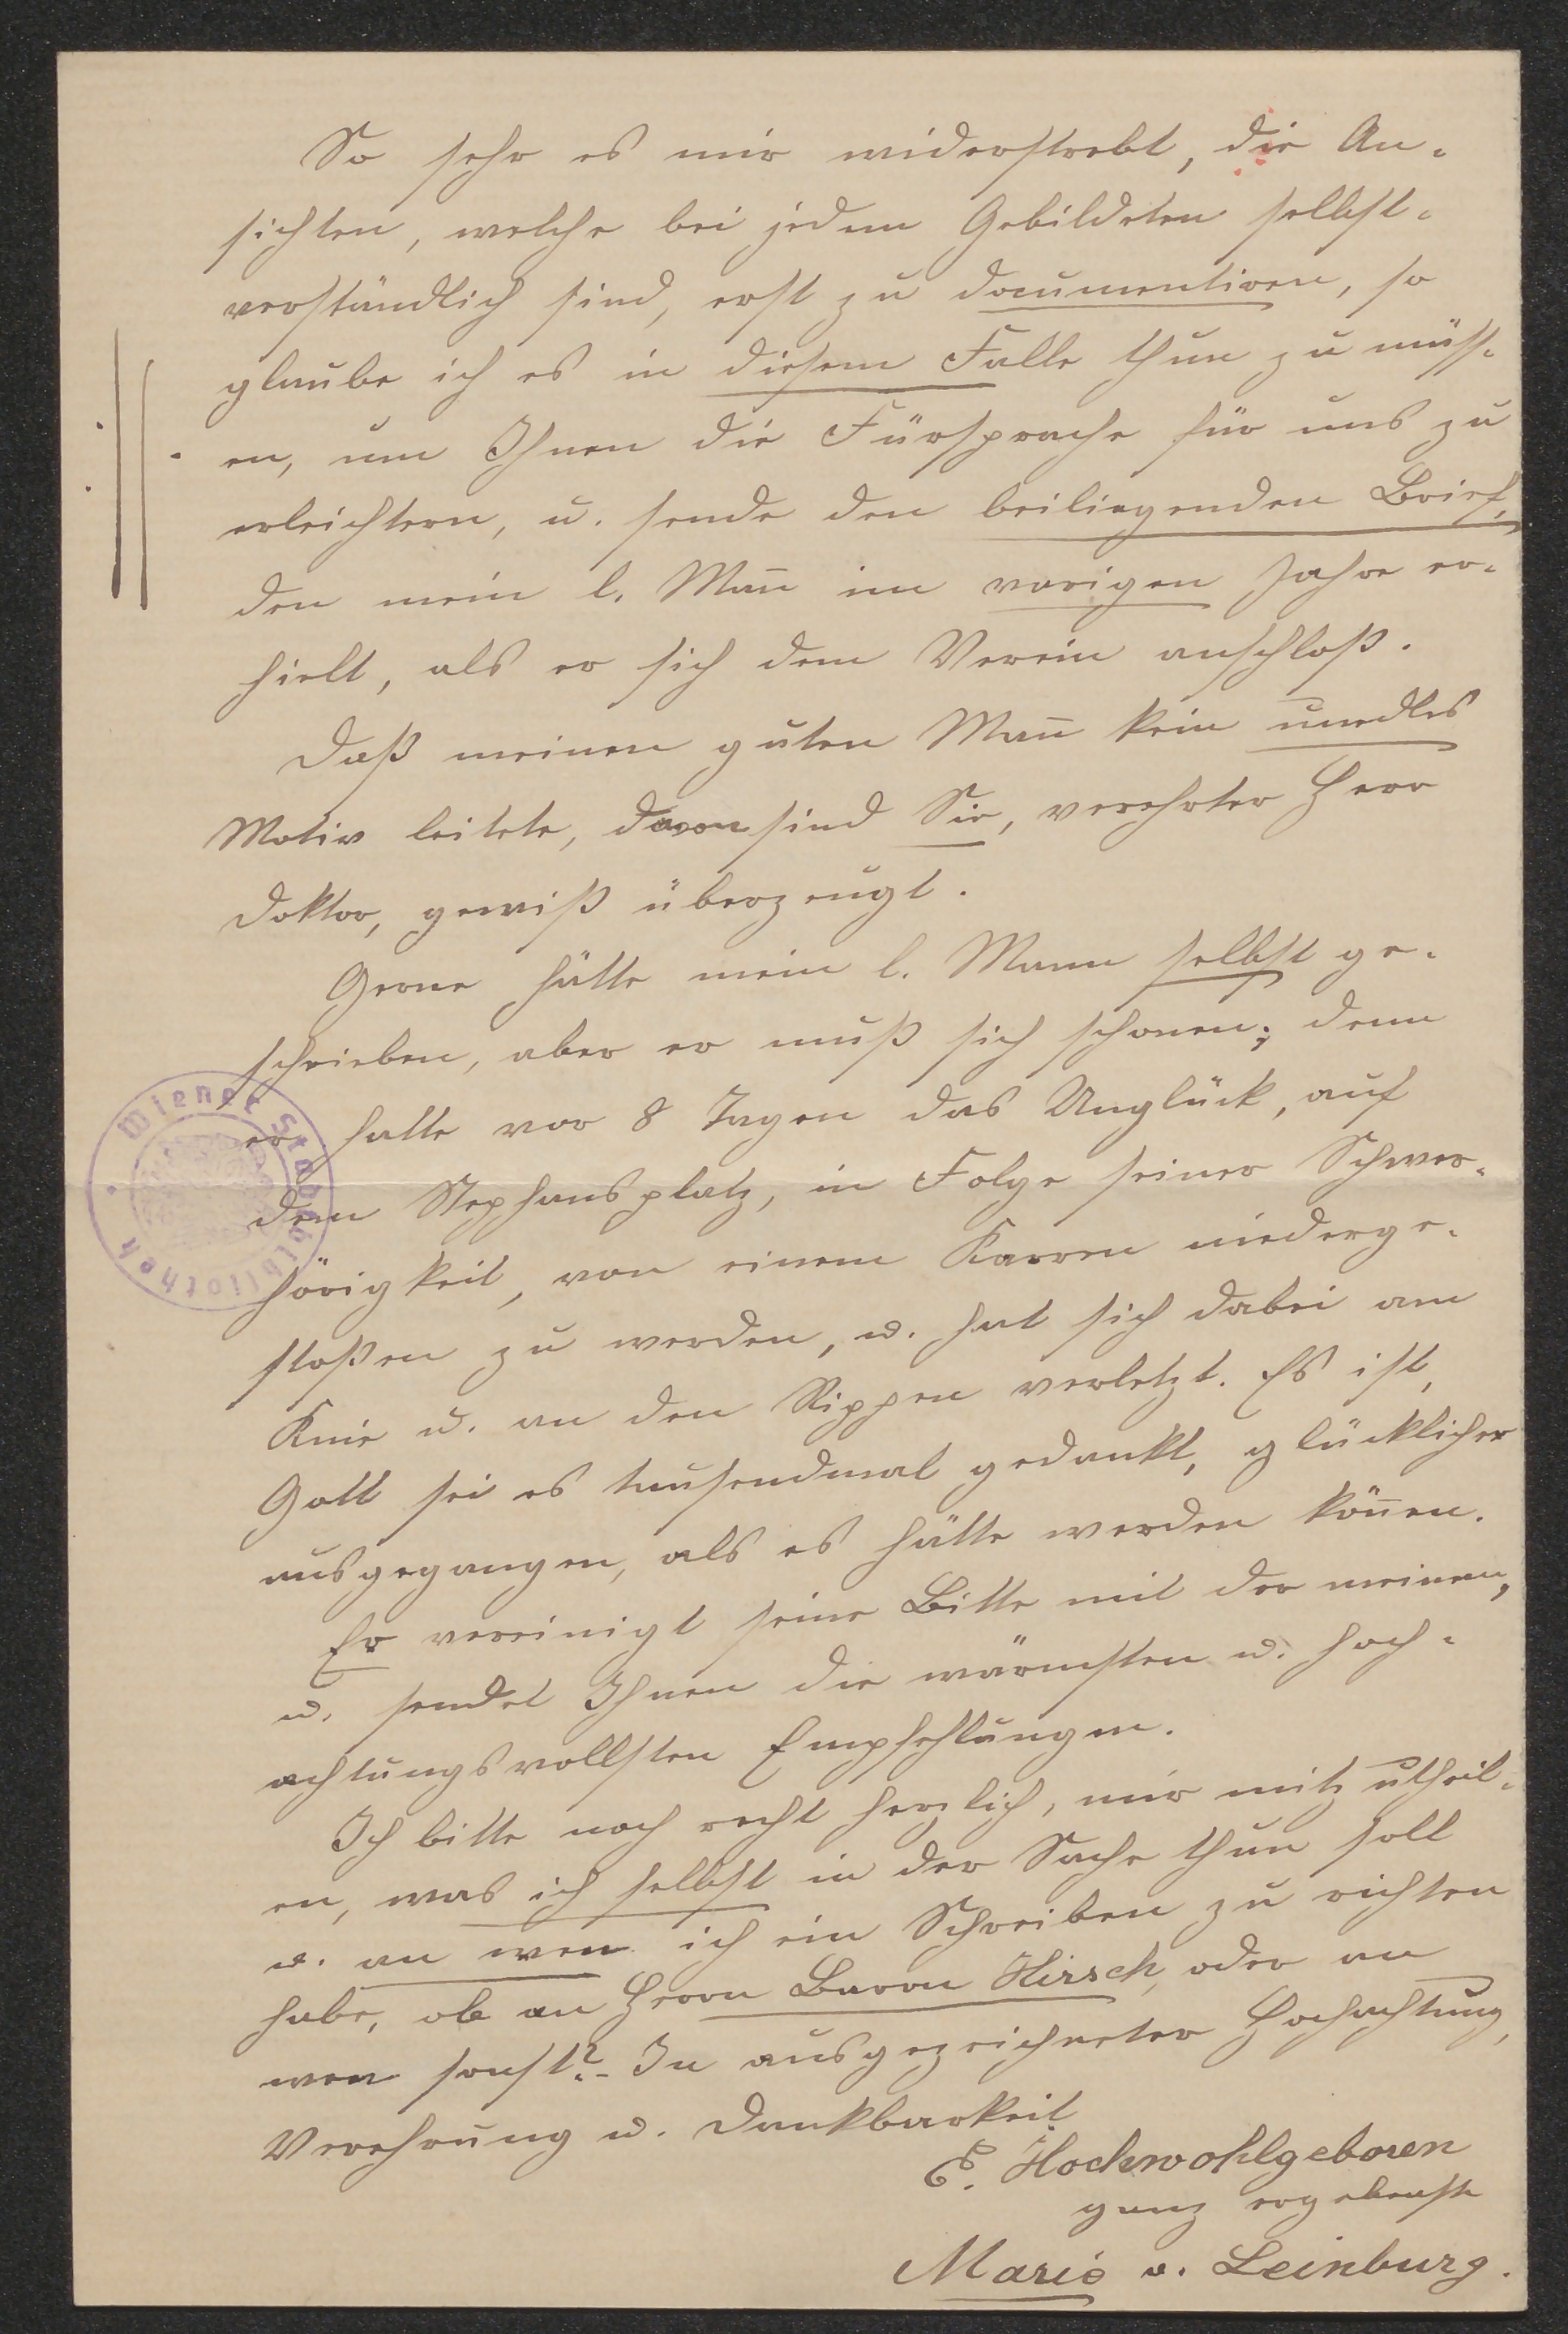 So sehr es mir widerstrebt, die An-
sichten, welche bei jedem Gebildeten selbst-
verständlich sind, erst zu documentiren, so
glaube ich es in diesem Falle thun zu müss-
en, um Ihnen die Fürsprache für uns zu
erleichtern, u. sende den beiliegenden Brief,
den mein l. Man̄ im vorigen Jahre er-
hielt, als er sich dem Verein anschloß.
Daß meinen guten Man̄ kein unedles
Motiv leitete, davon sind Sie, verehrter Herr
Doktor, gewiß überzeugt.
Gerne hätte mein l. Mann selbst ge-
schrieben, aber er muß sich schonen; denn
er hatte vor 8 Tagen das Unglück, auf
dem Stephansplatz, in Folge seiner Schwer-
hörigkeit, von einem Karren niederge-
stoßen zu werden, u. hat sich dabei am
Knie u. an den Rippen verletzt. Es ist,
Gott sei es tausendmal gedankt, glücklicher
ausgegangen, als es hätte werden kön̄en.
Er vereinigt seine Bitte mit der meinen,
u. sendet Ihnen die wärmsten u. hoch-
achtungsvollsten Empfehlungen.
Ich bitte noch recht herzlich, mir mitzutheil-
en, was ich selbst in der Sache thun soll
u. an wen ich ein Schreiben zu richten
habe, ob an Herrn Baron Hirsch, oder an
wen sonst? – In ausgezeichneter Hochachtung,
Verehrung u. Dankbarkeit
E. Hochwohlgeboren
ganz ergebenste
Marie v. Leinburg.
Wiener Stadtbibliothek